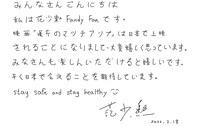 みんなさんこんにちは
私は花少夢 Fandy Fan です。
映画「運命のマッチアップ」は日本で上映
されることになりまして、大変嬉しく思っています。
みなさんも楽しんいただけると嬉しいです。
早く日本で会えることを期待しています。
stay safe and stay healthy
2022.2.18